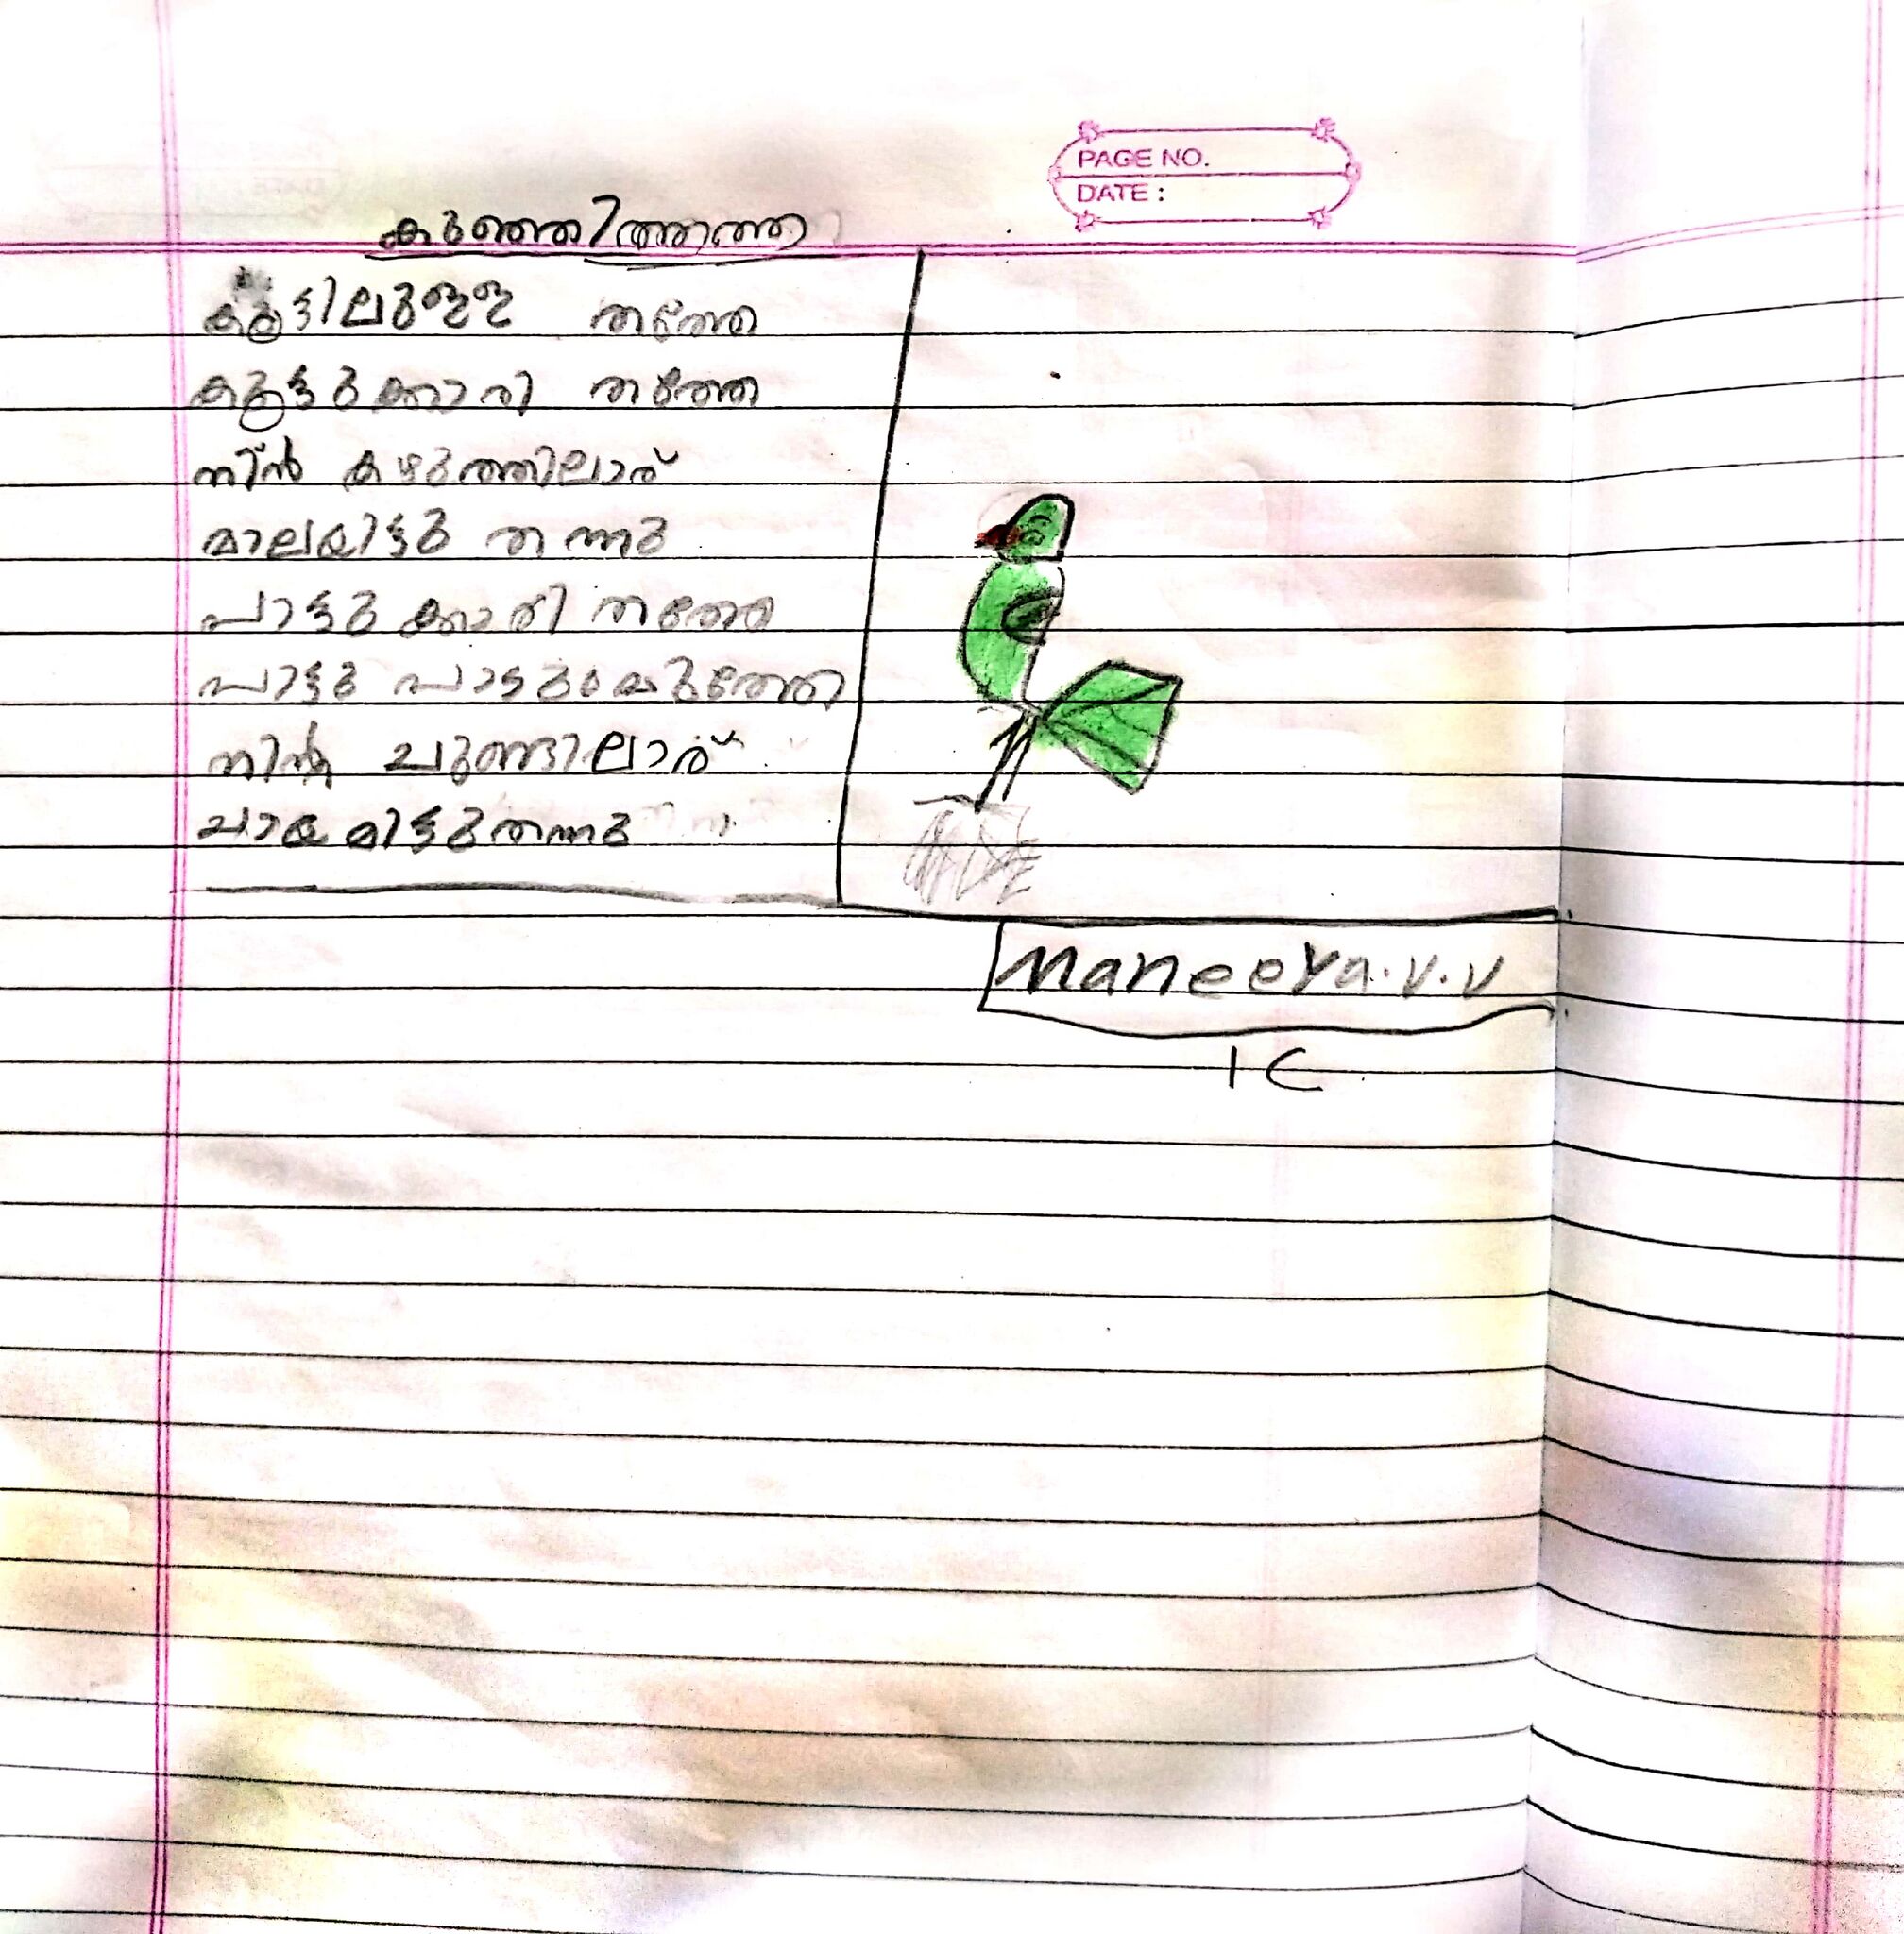 PAGE NO.
DATE :
കുഞ്ഞിത്തത്ത
കൂട്ടിലുള്ള തത്തേ
കൂട്ടുക്കാരി തത്തേ
നിൻ കഴുത്തിലാര്
മാലയിട്ടു തന്നു
പാട്ടുക്കാരി തത്തേ
പാട്ടു പാടും മുത്തേ
നിൻ്റ ചുണ്ടിലാര്
ചായമിട്ടുതന്നു
Maneeya.v.v
1 C